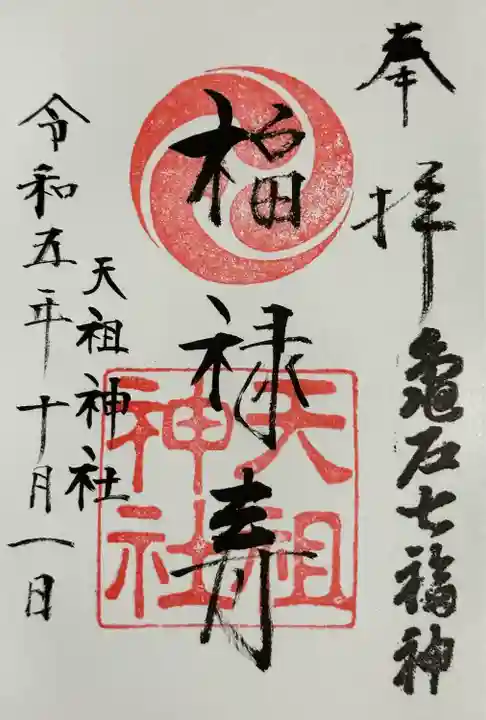 奉拝
亀石七福神
福禄寿
天祖神社
天祖神社
令和五年十月一日